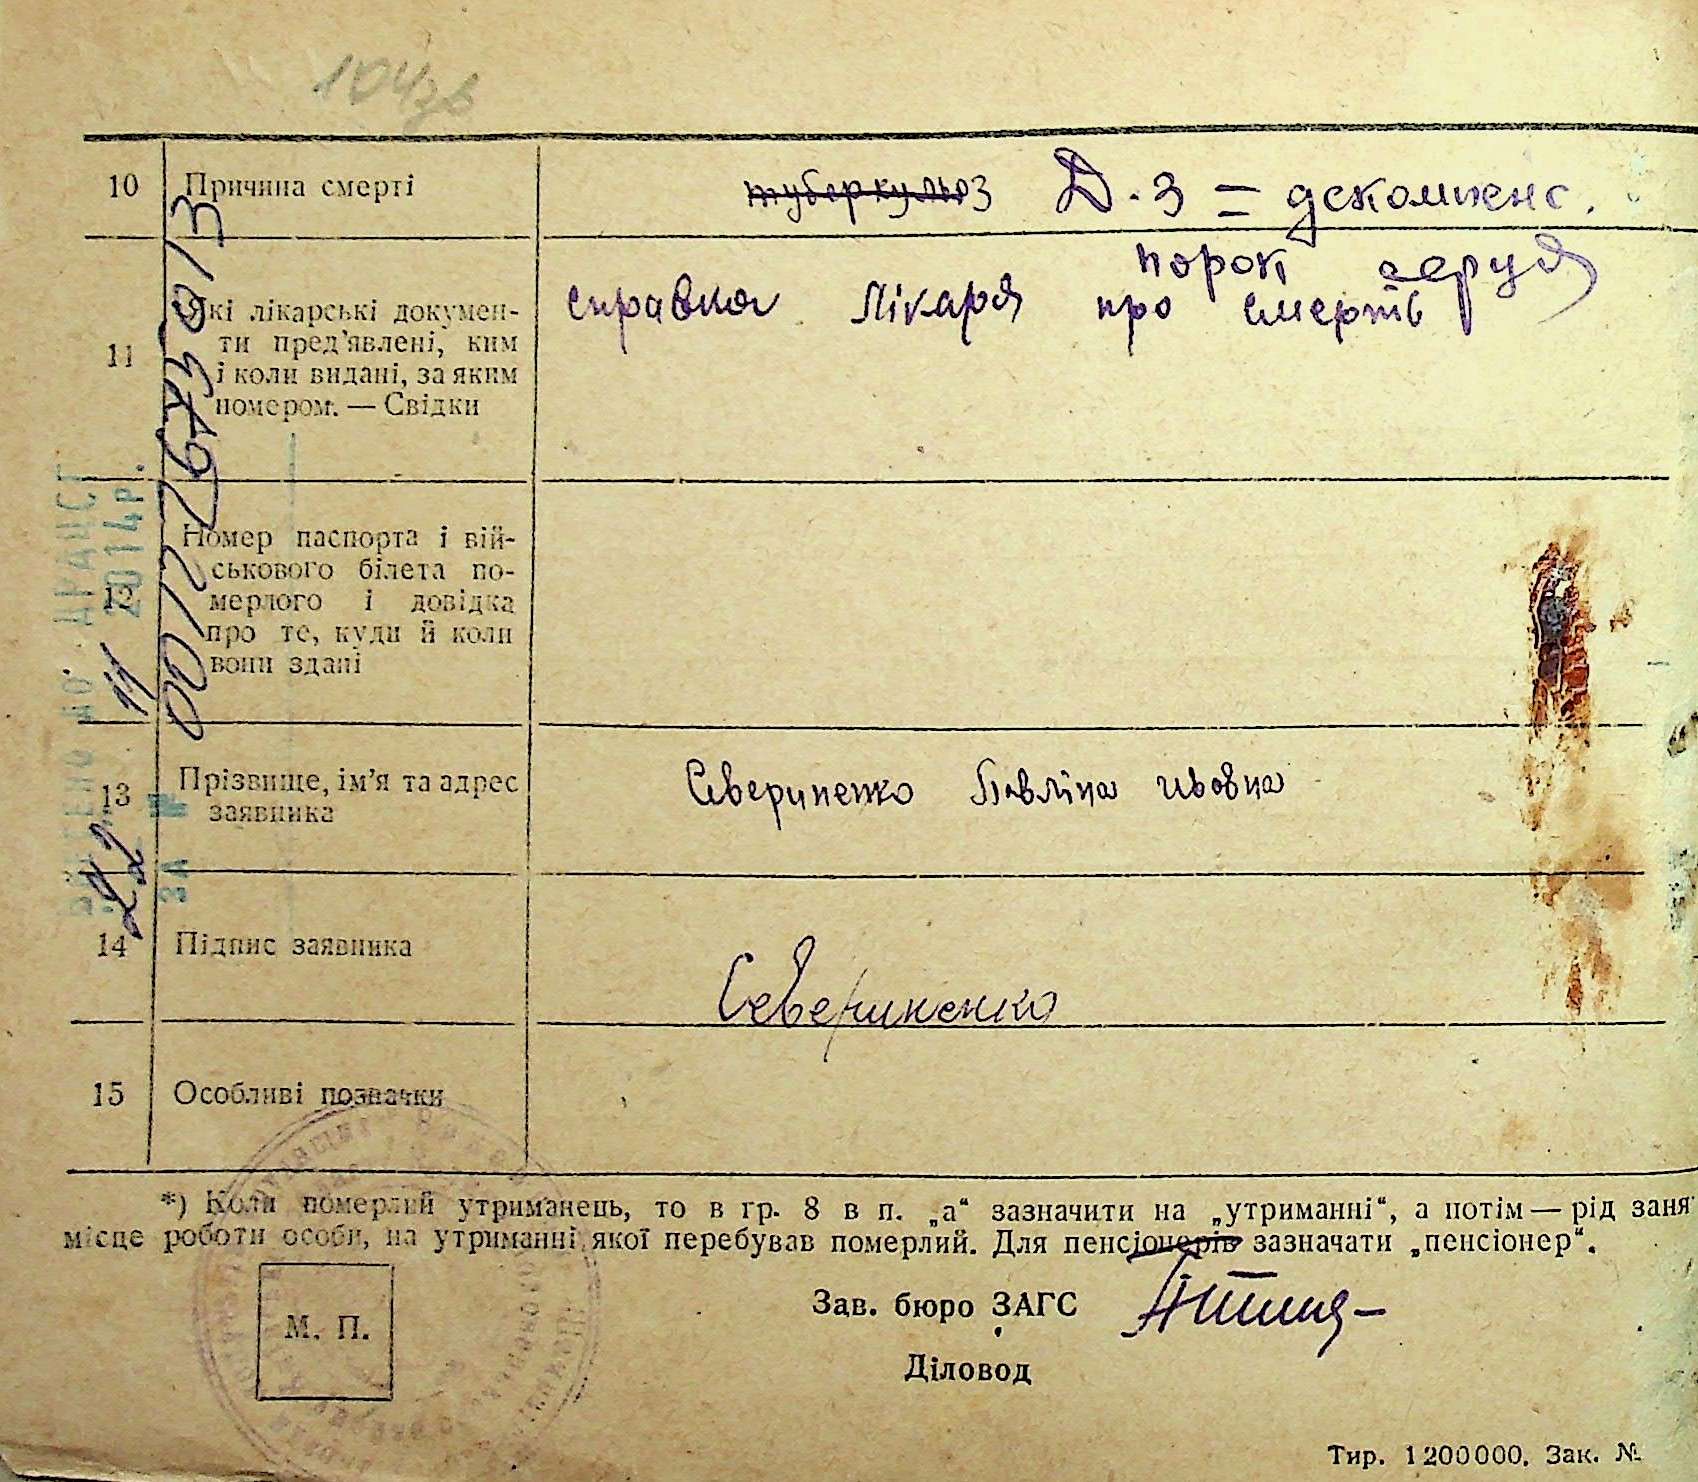 104зв
10 Причина смерті туберкульоз Д.з = декомпенс.
порок серця
11 Які лікарські докумен-
ти пред'явлені, ким
і коли видані, за яким
номером. — Свідки
справка лікаря про смерть
12 Номер паспорта і вій-
ськового білета по-
мерлого і довідка
про те, куди й коли
вони здані
13 Прізвище, ім'я та адрес
заявника
Севериненко Павліна
14 Підпис заявника
Севериненко
15 Особливі позначки
*) Коли померлий утриманець, то в гр. 8 в п. „а“ зазначити на „утриманні“, а потім — рід заня
місце роботи особи, на утриманні якої перебував померлий. Для пенсіонерів зазначати „пенсіонер“.
М. П.
Зав. бюро ЗАГС
Діловод
Тир. 1200000. Зак. №
ДО ДРАЦСГ
22 11 2014р.
ЗА №